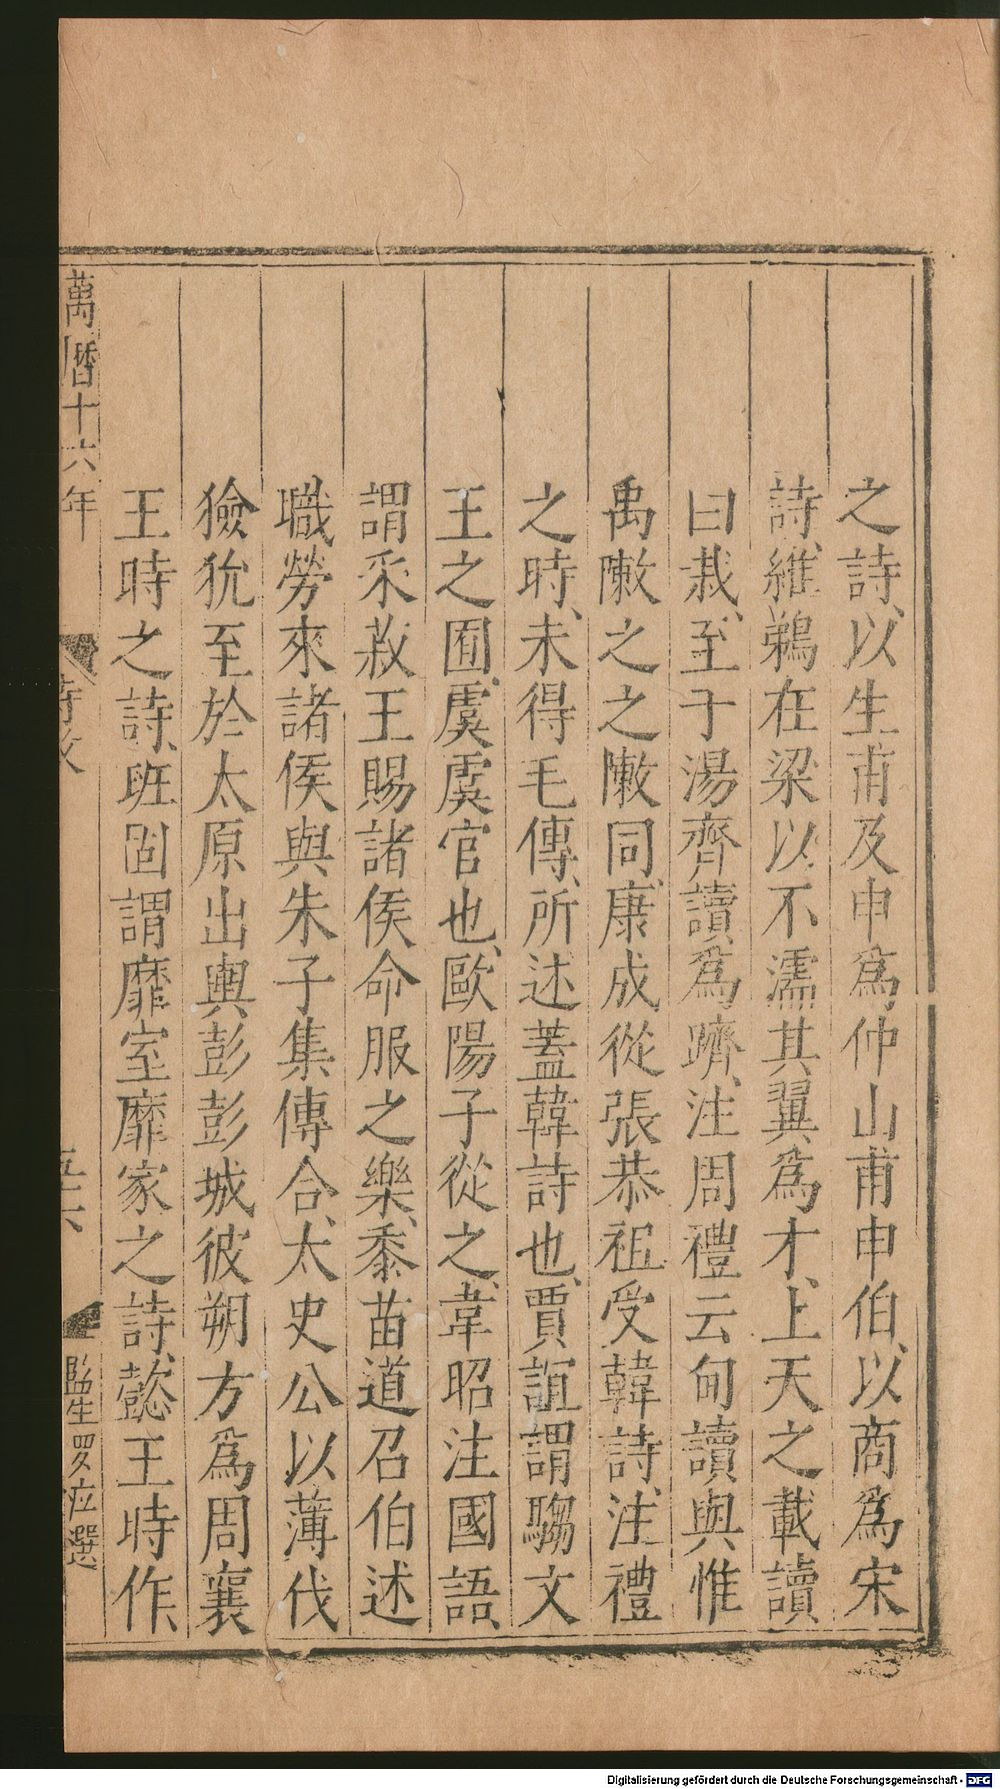 之詩、以生甫及申爲仲山甫申伯、以商爲宋
詩、維鵜在梁以不濡其翼爲才、上天之載讀
曰栽、至于湯齊讀爲躋、注周禮云甸讀與惟
禹敶之之敶同、康成從張恭祖受韓詩、注禮
之時、未得毛傳、所述蓋韓詩也、賈誼謂騶文
王之囿、虞虞官也、歐陽子從之、韋昭注國語、
謂采菽王賜諸侯命服之樂、黍苗道召伯述
職勞來諸侯與朱子集傳合、太史公以薄伐
獫狁至於太原出輿彭彭城彼朔方爲周襄
王時之詩、班固謂靡室靡家之詩、懿王時作、
萬曆十六年
詩攷
五六
監生罗应選
Digitalisierung gefördert durch die Deutsche Forschungsgemeinschaft - DFG